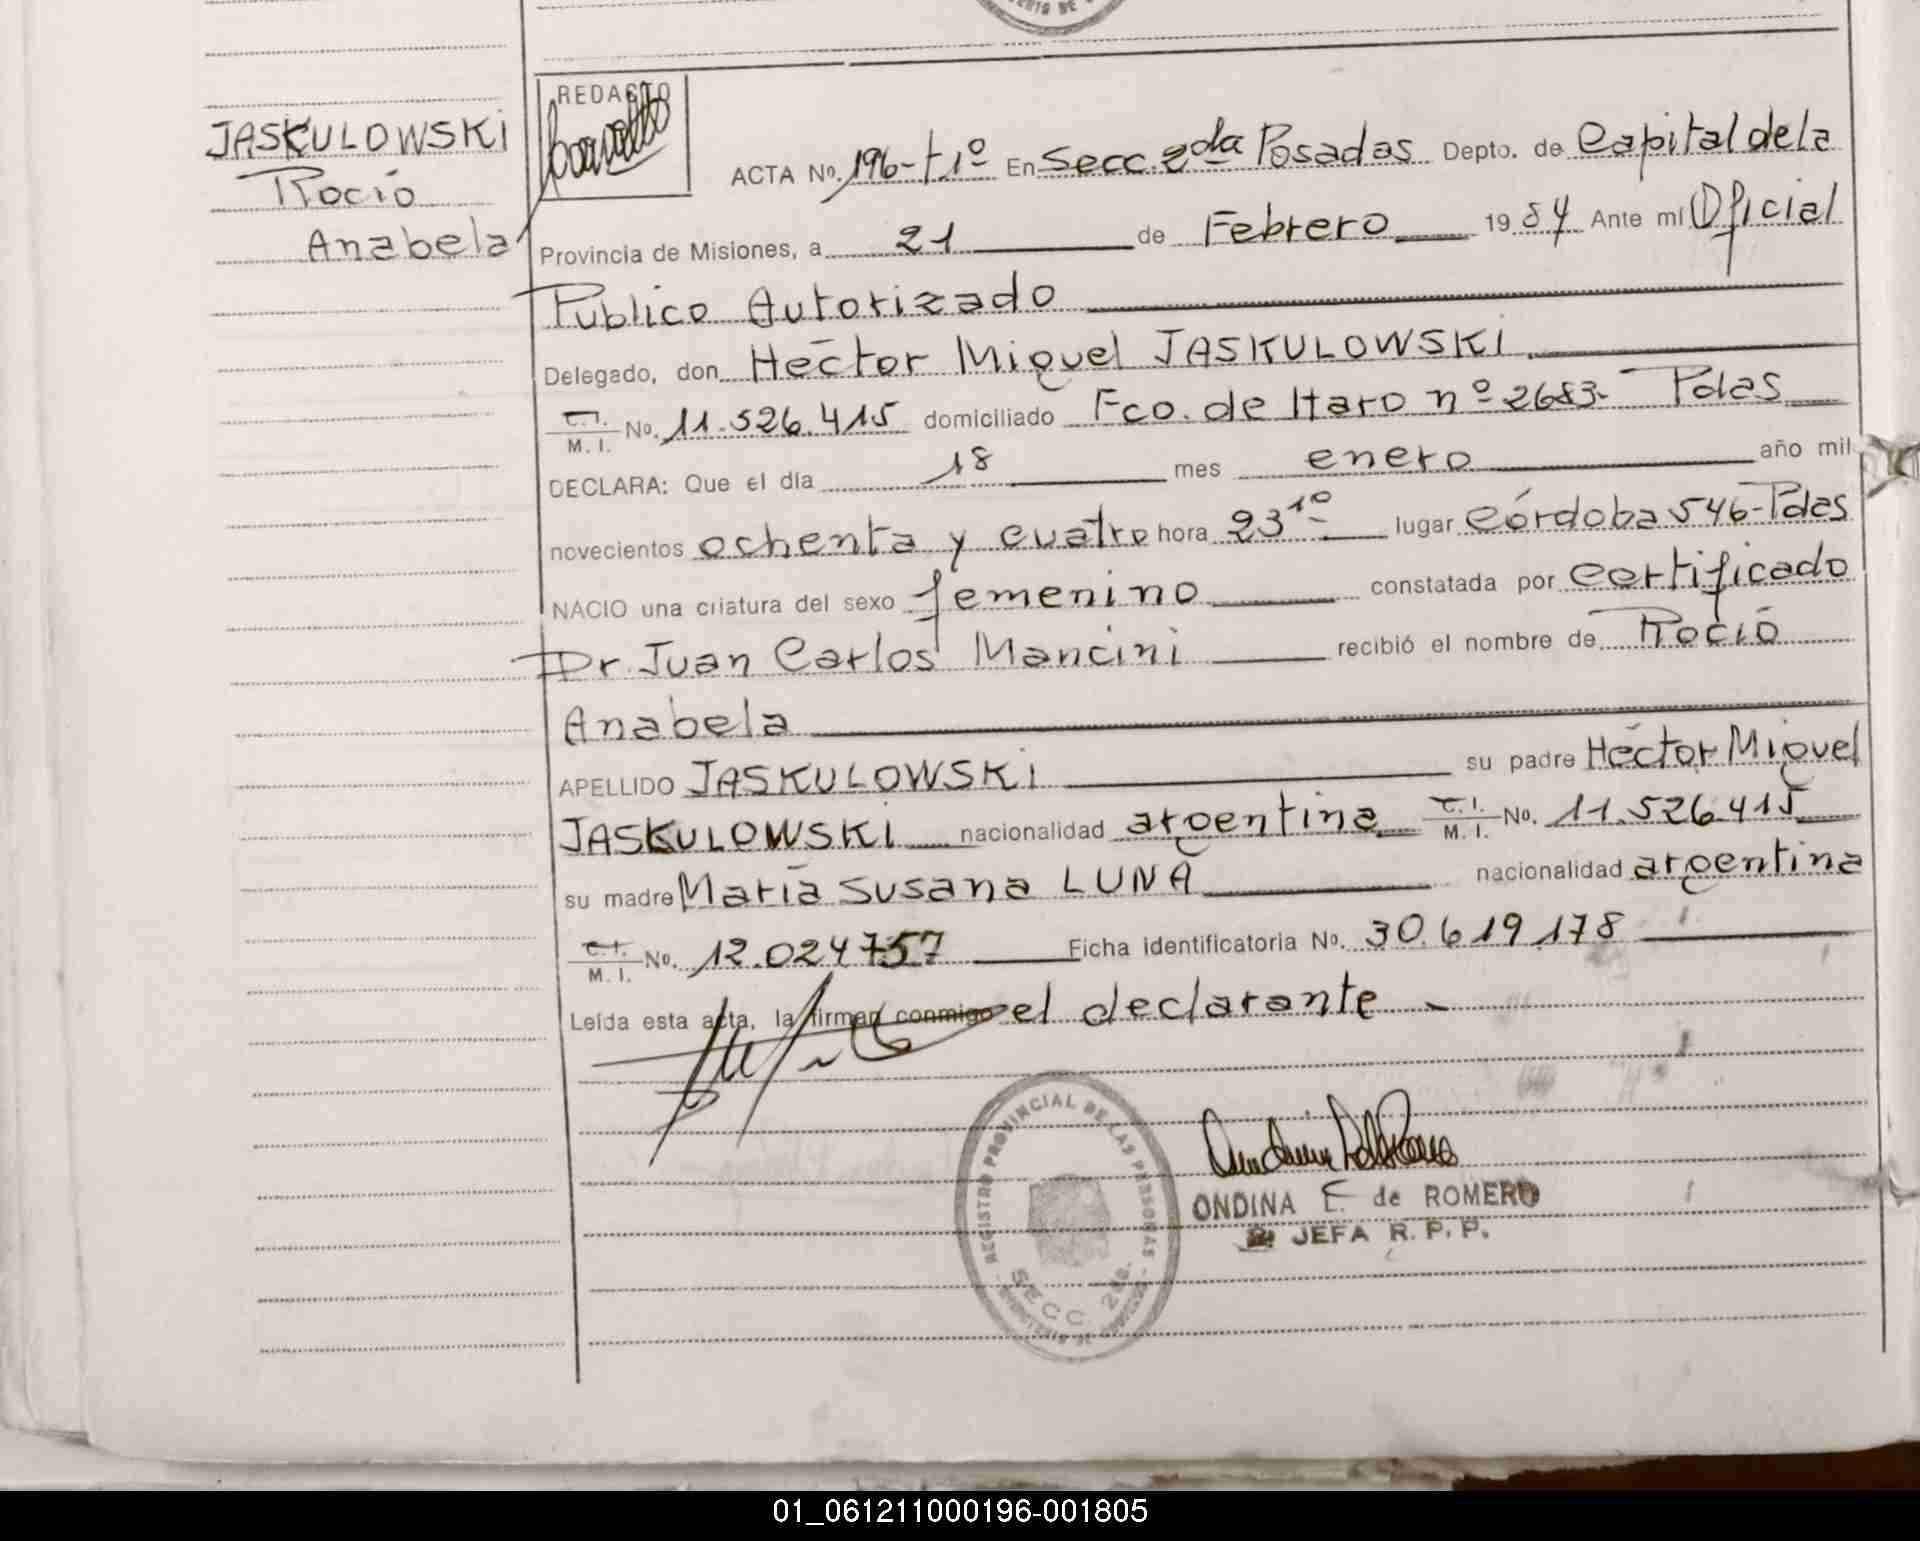 JASKULOWSKI
Rocío
Anabela
REDACTO
ACTA No. 196-t1º En Secc. 2da Posadas Depto. de Capital de la
Provincia de Misiones, a 21 de Febrero 1984 Ante mí Oficial
Publico Autorizado
Delegado, don Héctor Miguel JASKULOWSKI
C.I. M.I. No. 11.526.415 domiciliado Fco. de Haro nº 2683- Pdas
DECLARA: Que el día 18 mes enero año mil
novecientos ochenta y cuatro hora 23 10 lugar Córdoba 546-Pdas
NACIO una criatura del sexo femenino constatada por certificado
Dr. Juan Carlos Mancini recibió el nombre de Rocío
Anabela
APELLIDO JASKULOWSKI su padre Héctor Miguel
JASKULOWSKI nacionalidad argentina C.I. M.I. No. 11.526.415
su madre María Susana LUNA nacionalidad argentina
C.I. M.I. No. 12.024757 Ficha identificatoria No. 30.619.178
Leída esta acta, la firman conmigo el declarante
REGISTRO PROVINCIAL DE LAS PERSONAS
SECC 2da.
ONDINA E. de ROMERO
JEFA R.P.P.
01_061211000196-001805